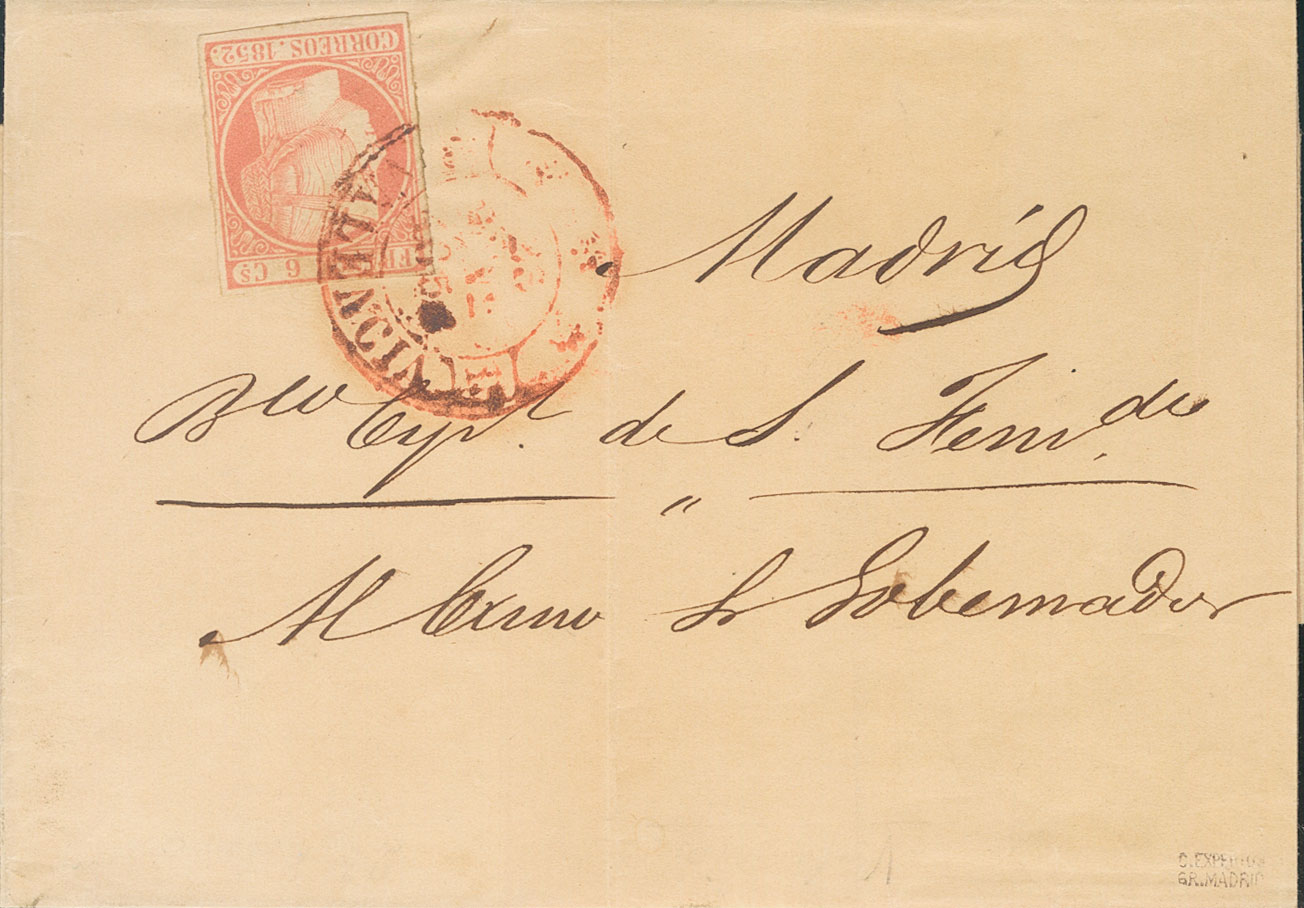 CORREOS. 1852.
6 Cs
VALENCIA
Madrid
Bco Esp.l de S. Fern.do
"
Al Exmo Sr Gobernador
C. EXPERTIZ
GR. MADRID